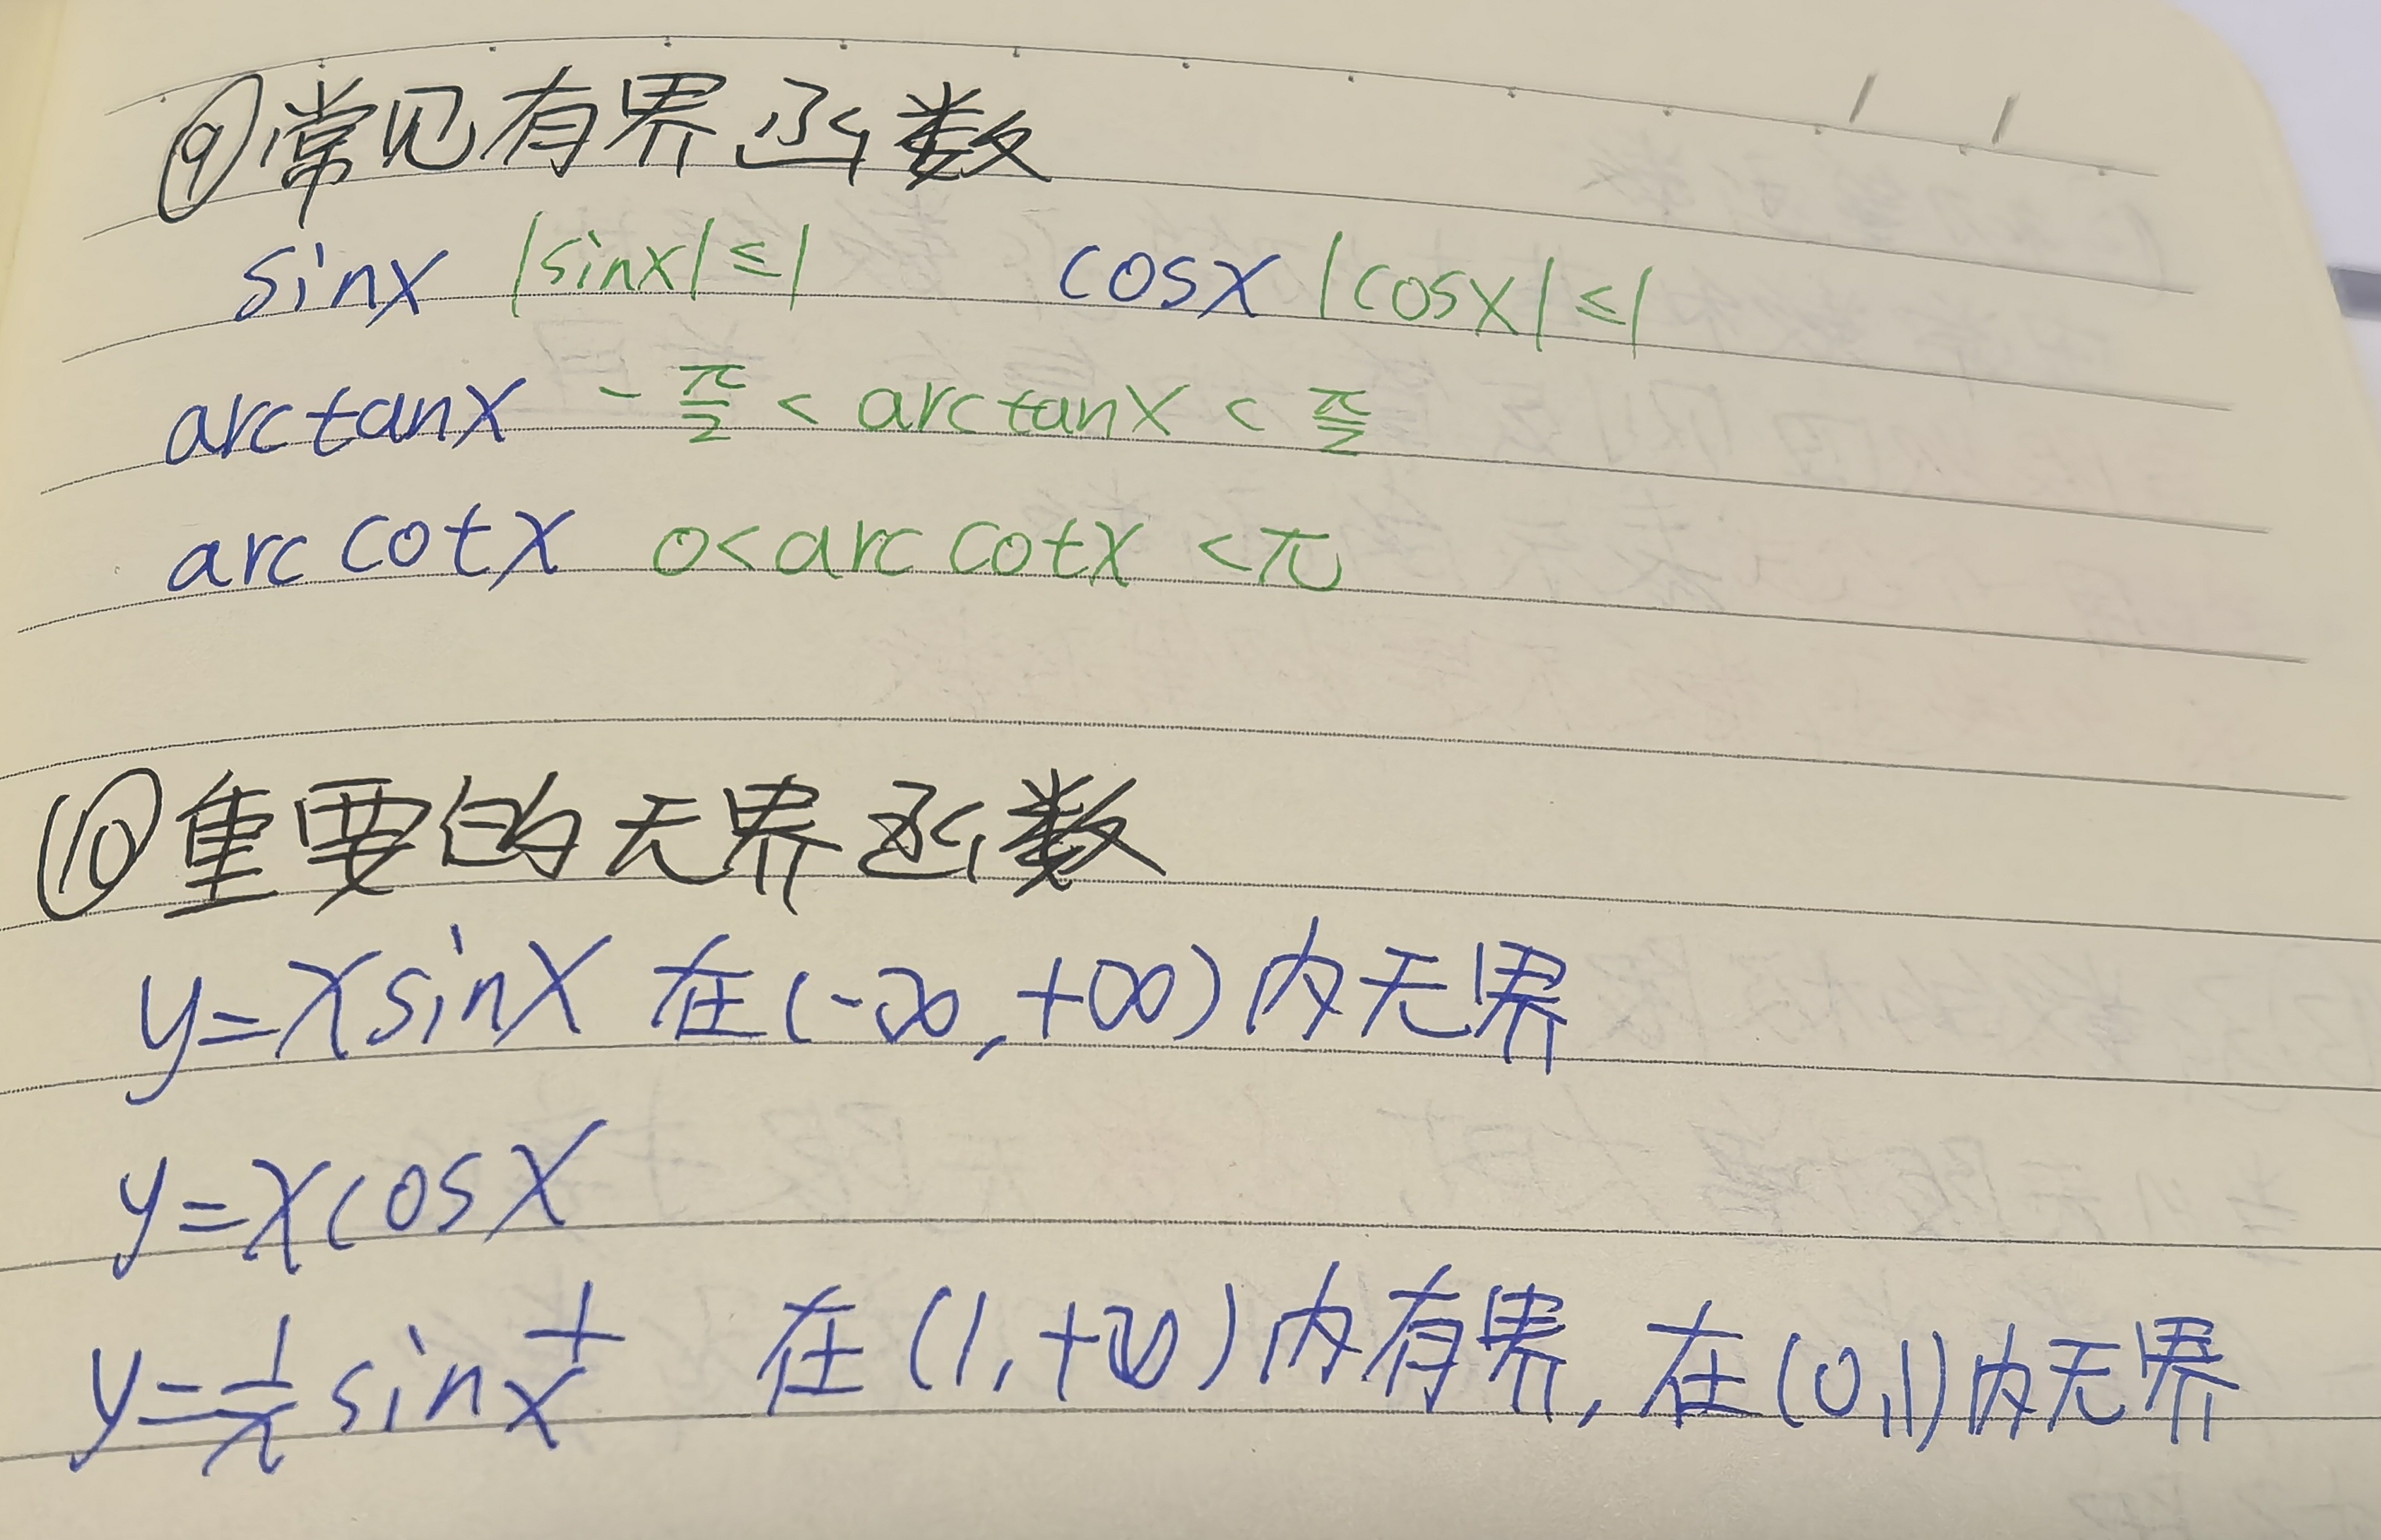 ⑨常见有界函数
sinx |sinx|≤1 cosx |cosx|≤1
arctanx -π/2 < arctanx < π/2
arccotx 0<arccotx<π
⑩重要的无界函数
y=xsinx 在(-∞,+∞)内无界
y=xcosx
y=1/x sin1/x 在(1,+∞)内有界,在(0,1)内无界